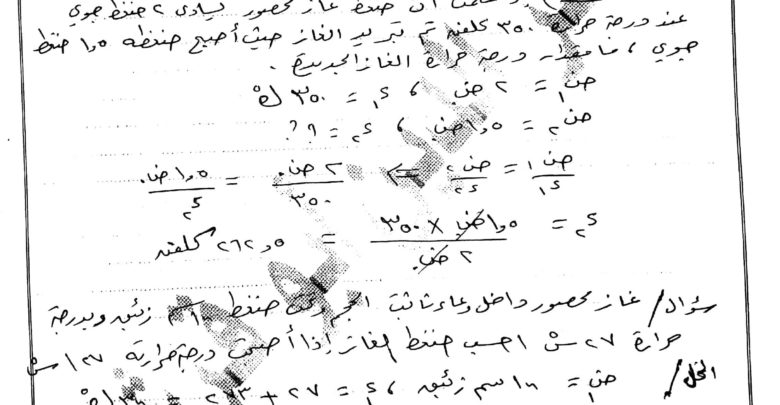 أن ضغط غاز محصور يساوي ٢ ضغط جوي
عند درجة حرارة ٣٥٠ كلفنه تم تبريد الغاز حيث أصبح ضغطه ١٫٥ ضغط
جوي ، ما مقدار درجة حرارة الغاز الجديدة .
ض١ = ٢ ض. ، د١ = ٣٥٠ ك
ض٢ = ١٫٥ ض. ، د٢ = ؟؟
ض١/د١ = ض٢/د٢ => ٢ ض./٣٥٠ = ١٫٥ ض./د٢
د٢ = ١٫٥ ض. × ٣٥٠ / ٢ ض. = ٢٦٢٫٥ كلفنه
سؤال / غاز محصور داخل وعاء ثابت الحجم وتحت ضغط سم زئبق وبدرجة
حرارة ٢٧ س احسب ضغط الغاز إذا أصبحت درجة حرارته ١٢٧ س
الحل / ض١ = سم زئبق ، د١ = ٢٧ + ٢٧٣ =